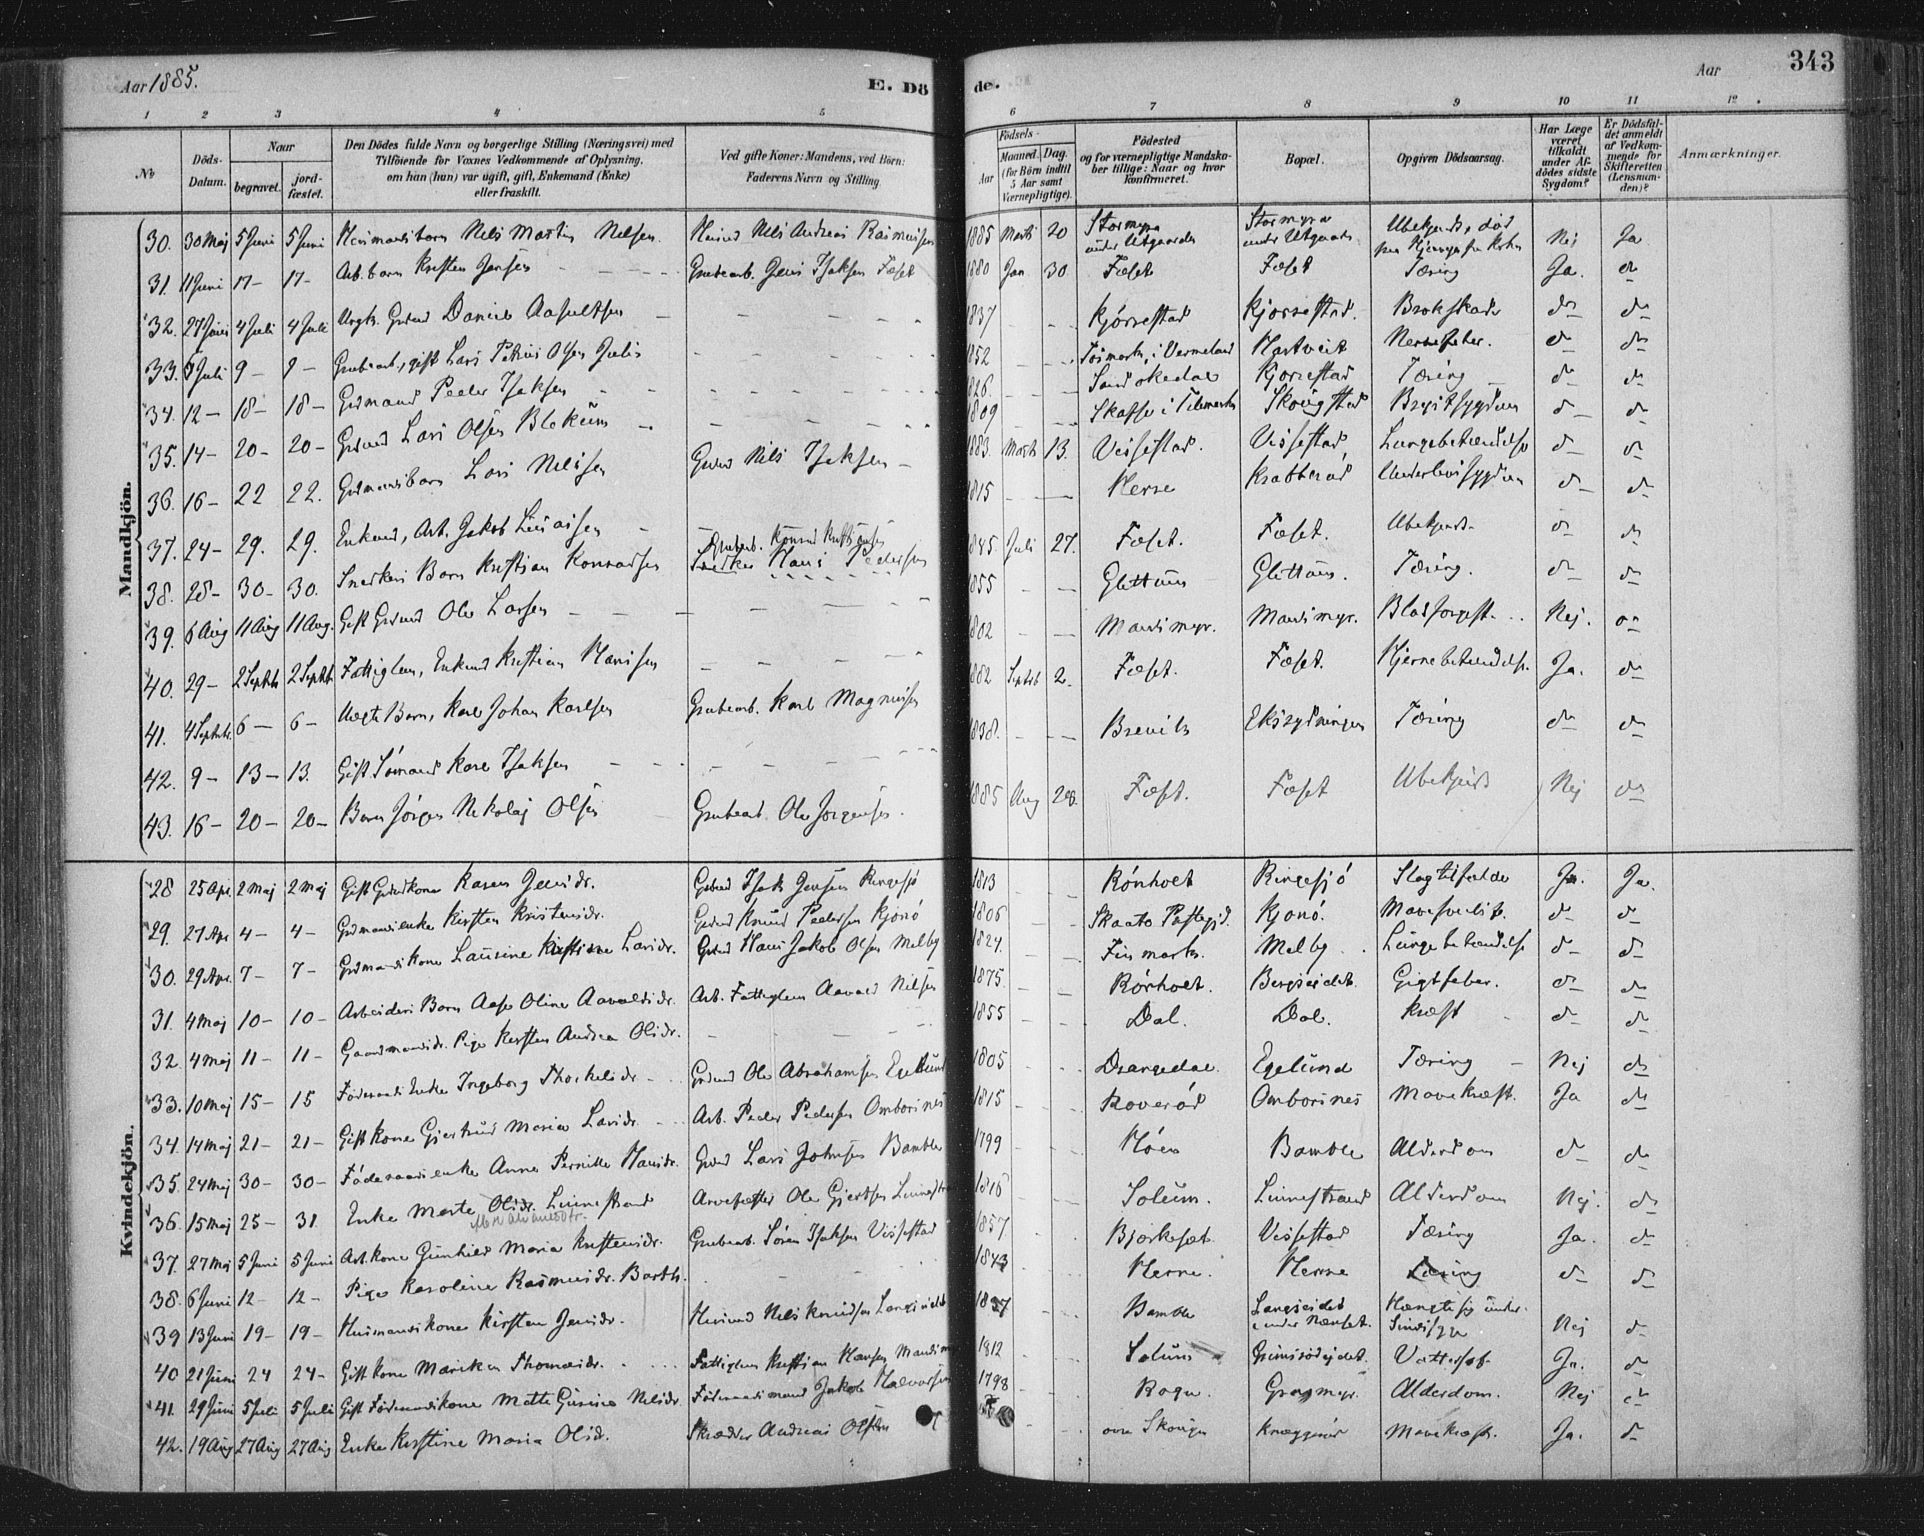 Aar 1885.
E. Dö
de.
Aar
343
1 2 3 4 5 6 7 8 9 10 11 12
No
Döds-Datum.
Naar
begravet.
jord-fæstet.
Den Dödes fulde Navn og borgerlige Stilling (Næringsvei) med
Tilföiende for Voxnes Vedkommende af Oplysning,
om han (hun) var ugift, gift, Enkemand (Enke)
eller fraskilt.
Ved gifte Koner: Mandens, ved Börn:
Faderens Navn og Stilling.
Födsels-
Aar
Maaned. Dag.
(for Börn indtil
5 Aar samt
Værnepligtige).
Födested
og for værnepligtige Mandska-
ber tillige: Naar og hvor
konfirmeret.
Bopæl.
Opgiven Dödsaarsag.
Har Læge
været
tilkaldt
under Af-
dödes sidste
Sygdom?
Er Dödsfal-
det anmeldt
af Vedkom-
mende for
Skifteretten
(Lensman-
den)?
Anmærkninger.
Mandkjön.
30. 30 Maj 5 Juni 5 Juni Husmandsbarn Nils Martin Nilsen. Husmd Nils Andreas Rasmussen 1885 Marts 20 Stormyra under Utgaarden Stormyra under Utgaarden Ubekjendt, død Nej Ja
31. 11 Juni 17 - 17 - Arb. barn Kristen Jensen Grubearb. Jens Isaksen Fæset 1880 Jan 30 Fæset Fæset Tæring Ja. do
32. 27 Juni 4 Juli 4 Juli Ungk. Grdmd Daniel Aasultsen 1837 Kjørrestad Kjørrestad. Brokskade do do
33. 5 Juli 9 - 9 - Grubearb., gift Lars Petrus Olsen Julis 1852 i Vermeland Hartveit Nervefeber. do do
34. 12 - 18 - 18 - Grdmand Peder Isaksen 1826. Sandøkedal Kjørrestad Tæring do do
35. 14 - 20 - 20 - Grdmd Lars Olsen Blekum 1809 Skafse i Telemarken Skougstad Brystsygdom do do
36. 16 - 22 22. Grdmandsbarn Lars Nilsen Grdmd Nils Isaksen 1883. Marts 13. Vissestad. Vissestad. Lungebetændelse do do
37. 24 - 29. 29. Enkemd, Arb. Jakob Isaksen 1815 Herre Krabberød Underlivssygdom do do
38. 28 - 30 - 30. Snedkers Barn Kristian Konradsen Grubearb. Konrad Kristensen Snedker Hans Pedersen 1885. Juli 27. Fæset. Fæset. Ubekjendt do do
39. 6 Aug 11 Aug 11 Aug. Gift Grdmd Ole Larsen 1855 Glittum Glittum. Tæring. do do
40. 29 - 2 Septbr 2 Septbr. Fattiglem, Enkemd Kristian Hansen 1802 Mandsmyr. Mandsmyr. Nej. do
41. 4 Septbr. 6 - 6 - Uægte Barn, Karl Johan Karlsen Grubearb. Karl Magnussen 1882 Septbr 2. Fæset. Fæset. Hjernebetændelse. Ja. do
42. 9 - 13 - 13. Gift Sømand Karl Isaksen 1838. Brevik Tæring do do
43. 16 - 20 - 20 - Barn Jørgen Nikolaj Olsen Grubearb. Ole Jørgensen. 1885 Aug 28. Fæset. Fæset Ubekjendt Nej do
Kvindekjön.
28 25 Apr. 2 Maj 2 Maj Gift Grdmdkone Karen Jensdr. Grdmd Isak Jensen Ringsjø 1813 Rønholt Ringesjø Slagtilfælde Ja. Ja.
29. 27 Apr 4 - 4 - Grdmandsenke Kirsten Kristensdr. Grdmd Knud Pedersen Kjønø 1806 Skaatø Præstegjd. Kjønø. do do
30. 29 Apr. 7 - 7 - Grdmandskone Lausine Kristiane Larsdr. Grdmd Hans Jakob Olsen Melby 1824. Finmarken. Melby Lungebetændelse do do
31. 4 Maj 10 - 10 - Arbeiders Barn Aase Oline Aavaldsdr. Arb. Fattiglem Aavald Nilsen 1875. Rønholt. Gigtfeber. do do
32. 4 Maj 11 - 11 - Gaardmandsdr. Pige Kirsten Andrea Olsdr. 1855 Dal. Dal. Kræft do do
33. 10 Maj 15 - 15 Føderaads Enke Ingeborg Thorkelsdr. Grdmd Ole Abrahamsen Egelund 1805 Drangedal Egelund Tæring Nej do
34. 14 Maj 21 - 21 - Gift kone Gjertrud Maria Larsdr. Arb. Peder Pedersen Omborsnes 1815 Roverød Omborsnes Mavekræft. Ja do
35. 24 Maj 30 - 30 - Føderaadsenke Anne Pernille Hansdr. Grdmd Lars Johnsen Bamble 1799 Høen Bamble Alderdom do do
36. 15 Maj 25 - 31 Enke Marte Olsdr. Linnestrand Ole Gjertsen Linnestrand 1816 Solum. Linnestrand Alderdom Nej. do
37. 27 Maj 5 Juni 5 Juni Arb. kone Gunhild Maria Kristensdr. Grubearb. Søren Isaksen Vissestad 1857 Bjørkeset. Vissestad Tæring Ja. do
38. 6 Juni 12 - 12 - Pige Karoline Rasmusdr. Barth. 1843 Herre. Herre Tæring do do
39 13 Juni 19 - 19 - Husmandskone Kirsten Jensdr. Husmd Nils Knudsen Langseidet 1837 Bamble Langseidet under Hængte sig under Sindssyge Nej do
40 21 Juni 24 24 - Gift kone Mariken Thomasdr. Fattiglem Kristian Hansen Mandsmyr 1812 Solum Grimsrødejdet. Vattersot Ja. do
41. 29 Juni 5 Juli 5 Juli Gift Føderaadskone Mette Gurine Nilsdr. Føderaadsmand Jakob Halvorsen 1798 Grasmyr. Alderdom. Nej do
42. 19 Aug 27 Aug 27 Aug Enke Kirstine Maria Olsdr. Skrædder Andreas Olsen Mavekræft. Ja. do